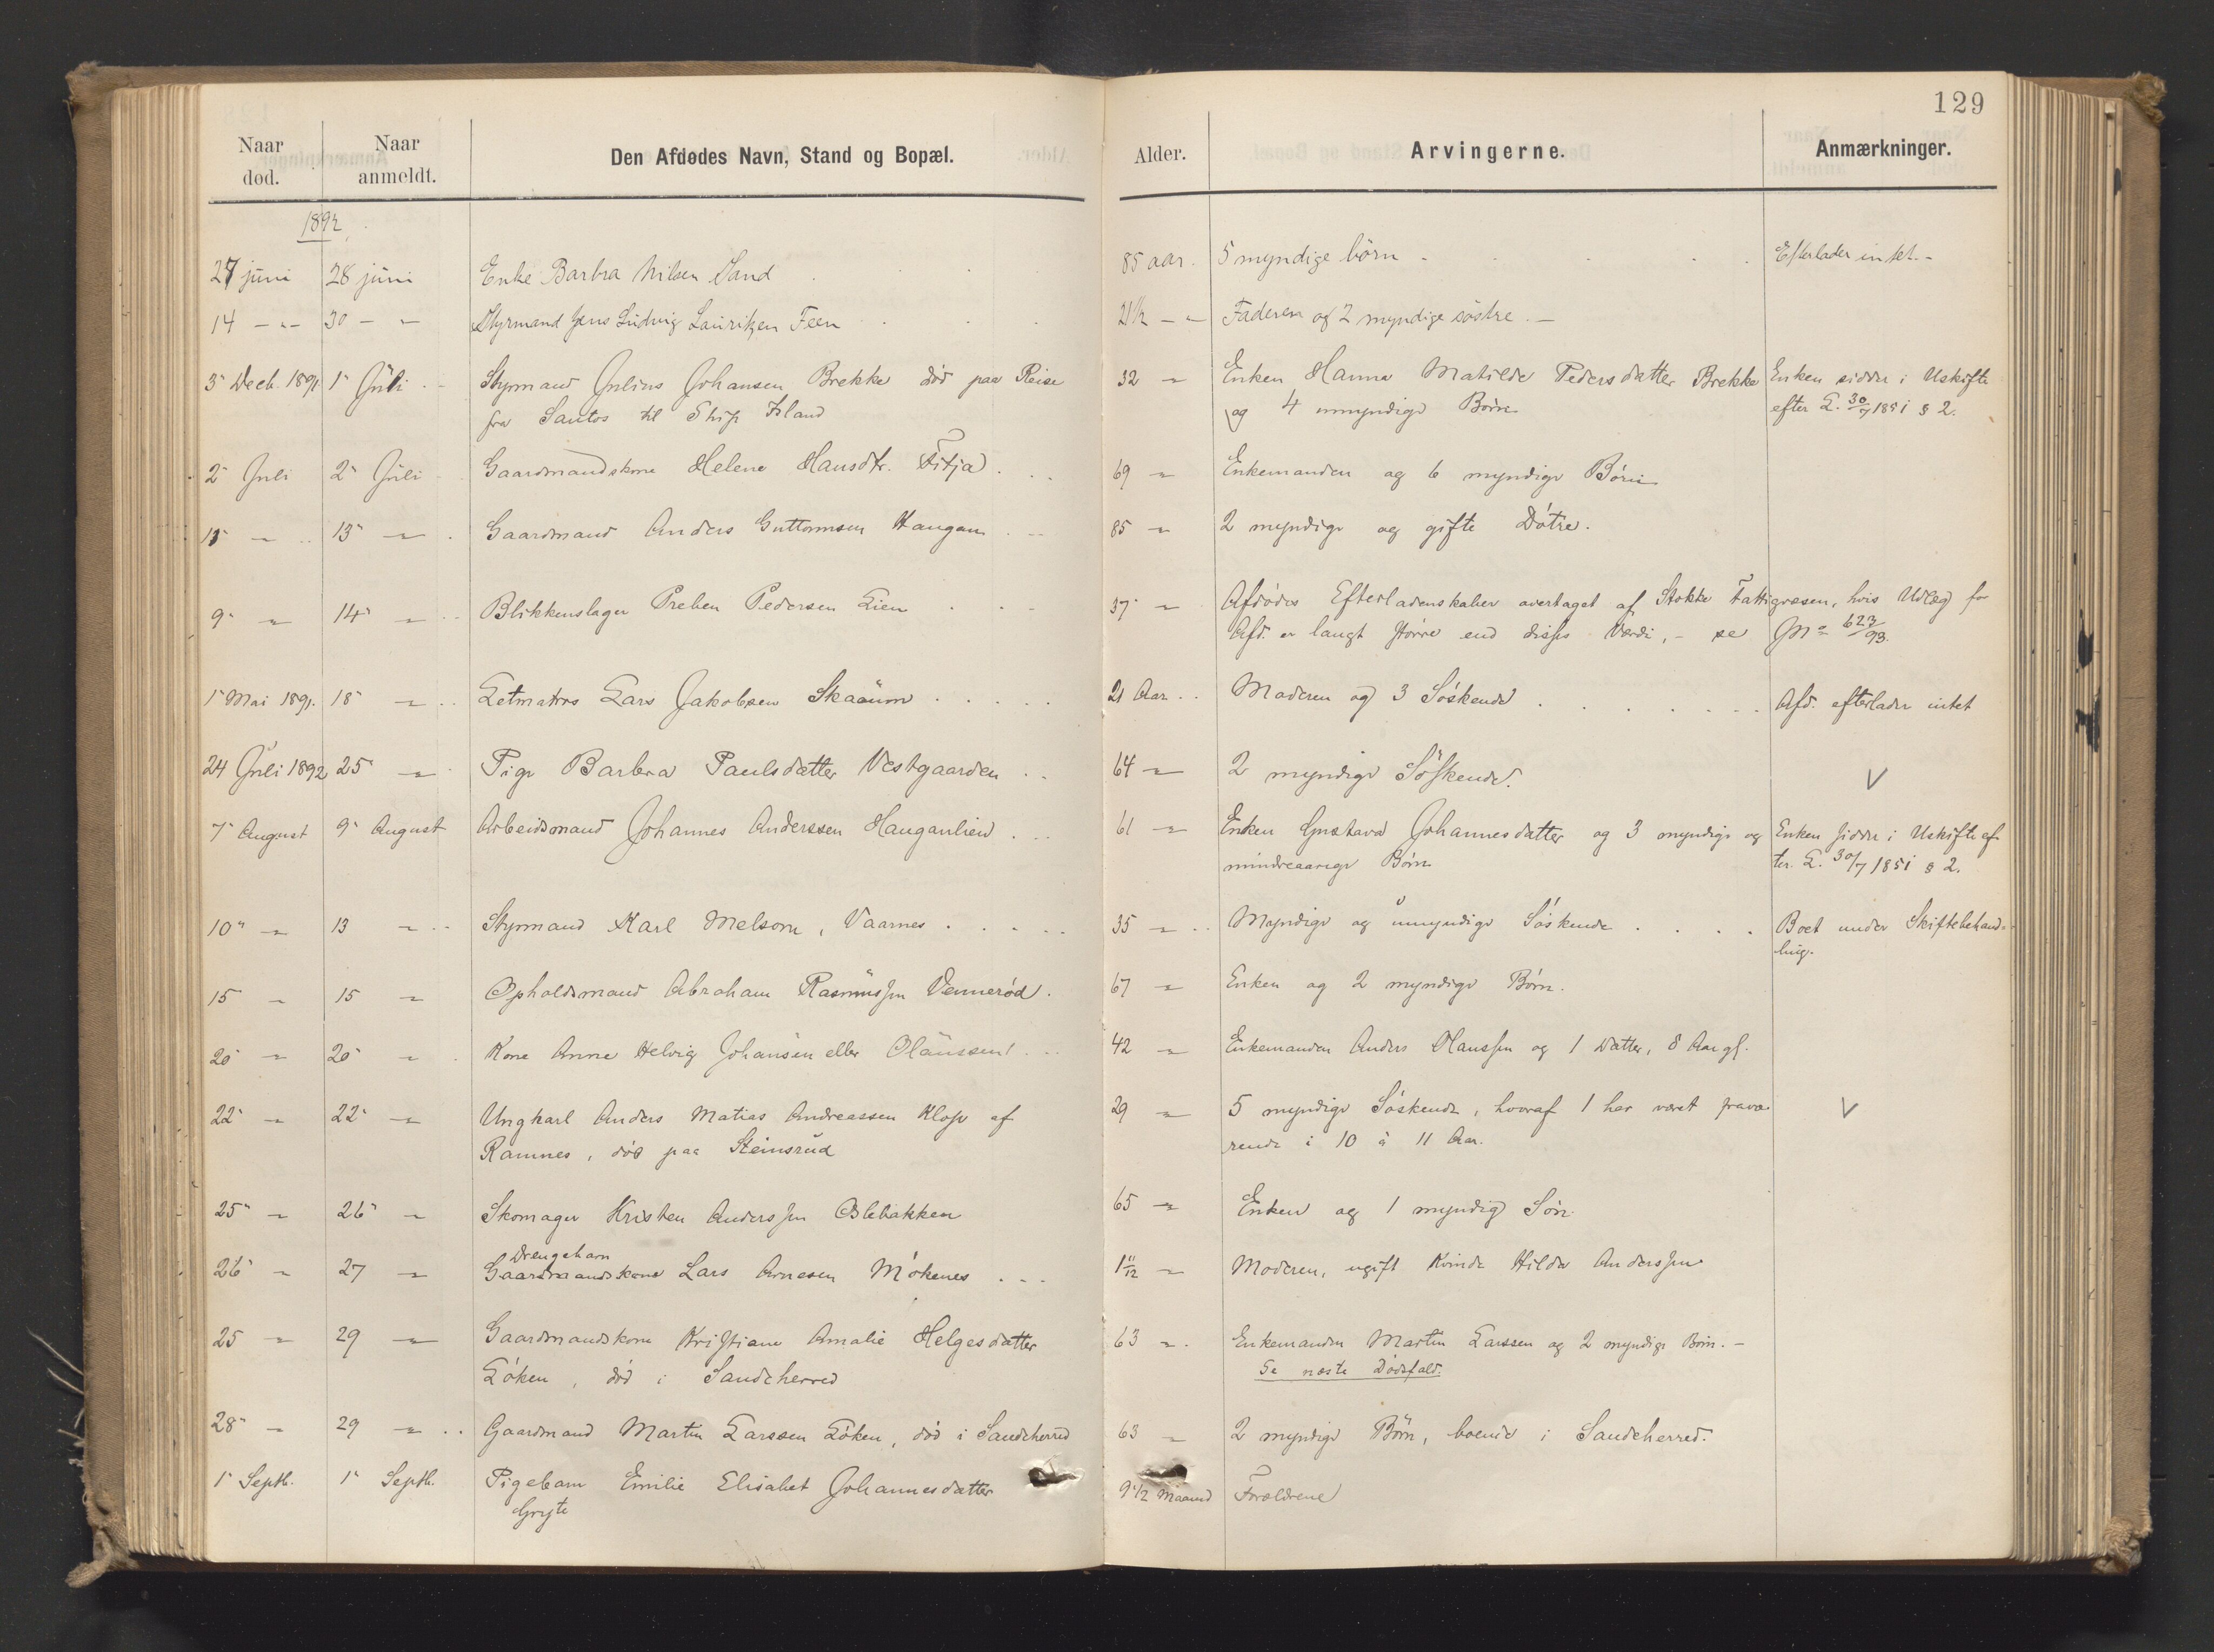 129
Naar død. Naar anmeldt. Den Afdødes Navn, Stand og Bopæl. Alder. Arvingerne. Anmærkninger.
1892
27 juni 28 juni Enke Barbra Nilsen Sand 85 aar. 5 myndige børn - Efterlader intet.-
14 - " - 30 - " Styrmand Jens Ludvig Lauritzen Feen 21½ - " Faderen og 2 myndige søstre.-
3 Decb. 1891 1 Juli Styrmand Julius Johansen Brekke død paa Reise 32 " Enken Hanna Matilde Pedersdatter Brekke Enken sidder i Uskifte
fra Santos til Ship Island og 4 umyndige Børn efter L. 30/7 1851 § 2.
2 Juli 2 Juli Gaardmandskone Helene Hansdtr. Fitja 69 " Enkemanden og 6 myndige Børn
11 " 13 " Gaardmand Anders Guttormsen Haugan 85 " 2 myndige og gifte Døtre.
9 " 14 " Blikkenslager Preben Pedersen Lien 37 " Afdødes Efterladenskaber overtaget af Stokke Fattigvæsen, hvis Udlæg for
Afd. er langt større end disses Værdi, - se JNo 623/93.
1 Mai 1891. 18 " Letmatros Lars Jakobsen Skaaum 21 Aar Moderen og 3 Søskende Afd. efterlader intet
24 Juli 1892 25 " Pige Barbra Paulsdatter Vestgaarden 64 " 2 myndige Søskende. V
7 August 9 August Arbeidsmand Johannes Anderssen Hauganlien 61 " Enken Gustava Johannesdatter og 3 myndige og Enken sidder i Uskifte ef-
mindreaarige Børn ter. L. 30/7 1851 § 2.
10 " 13 " Styrmand Karl Melsom, Vaarnes 35 " Myndige og umyndige Søskende Boet under Skiftebehand-
ling.
15 " 15 " Opholdsmand Abraham Rasmussen Vennerød. 67 " Enken og 2 myndige Børn.
20 " 20 " Kone Anne Helvig Johansen eller Olaussen 42 " Enkemanden Anders Hanssen og 1 Datter, 8 Aar gl.
22 " 22 " Ungkarl Anders Matias Andreassen Klop af 29 " 5 myndige Søskende, hvoraf 1 har været fravæ- V
Ramnes, død paa Steinsrud rende i 10 à 11 Aar.
25 " 26 " Skomager Kristen Anderssen Oslebakken 65 " Enken og 1 myndig Søn
Drengebarn
26 " 27 " Gaardmandskone Lars Arnesen Møkenes 1 11/12 " Moderen, ugift Kvinde Hilda Anderssen
25 " 29 " Gaardmandskone Kristiane Amalie Helgesdatter 63 " Enkemanden Martin Larssen og 2 myndige Børn.-
Løken, død i Sandeherred Se næste Dødsfald.
28 " 29 " Gaardmand Martin Larssen Løken, død i Sandeherred 63 " 2 myndige Børn, boende i Sandeherred.
1 Septb. 1 Septb. Pigebarn Emilie Elisabet Johannesdatter 9½ Maaned Forældrene
Gryte